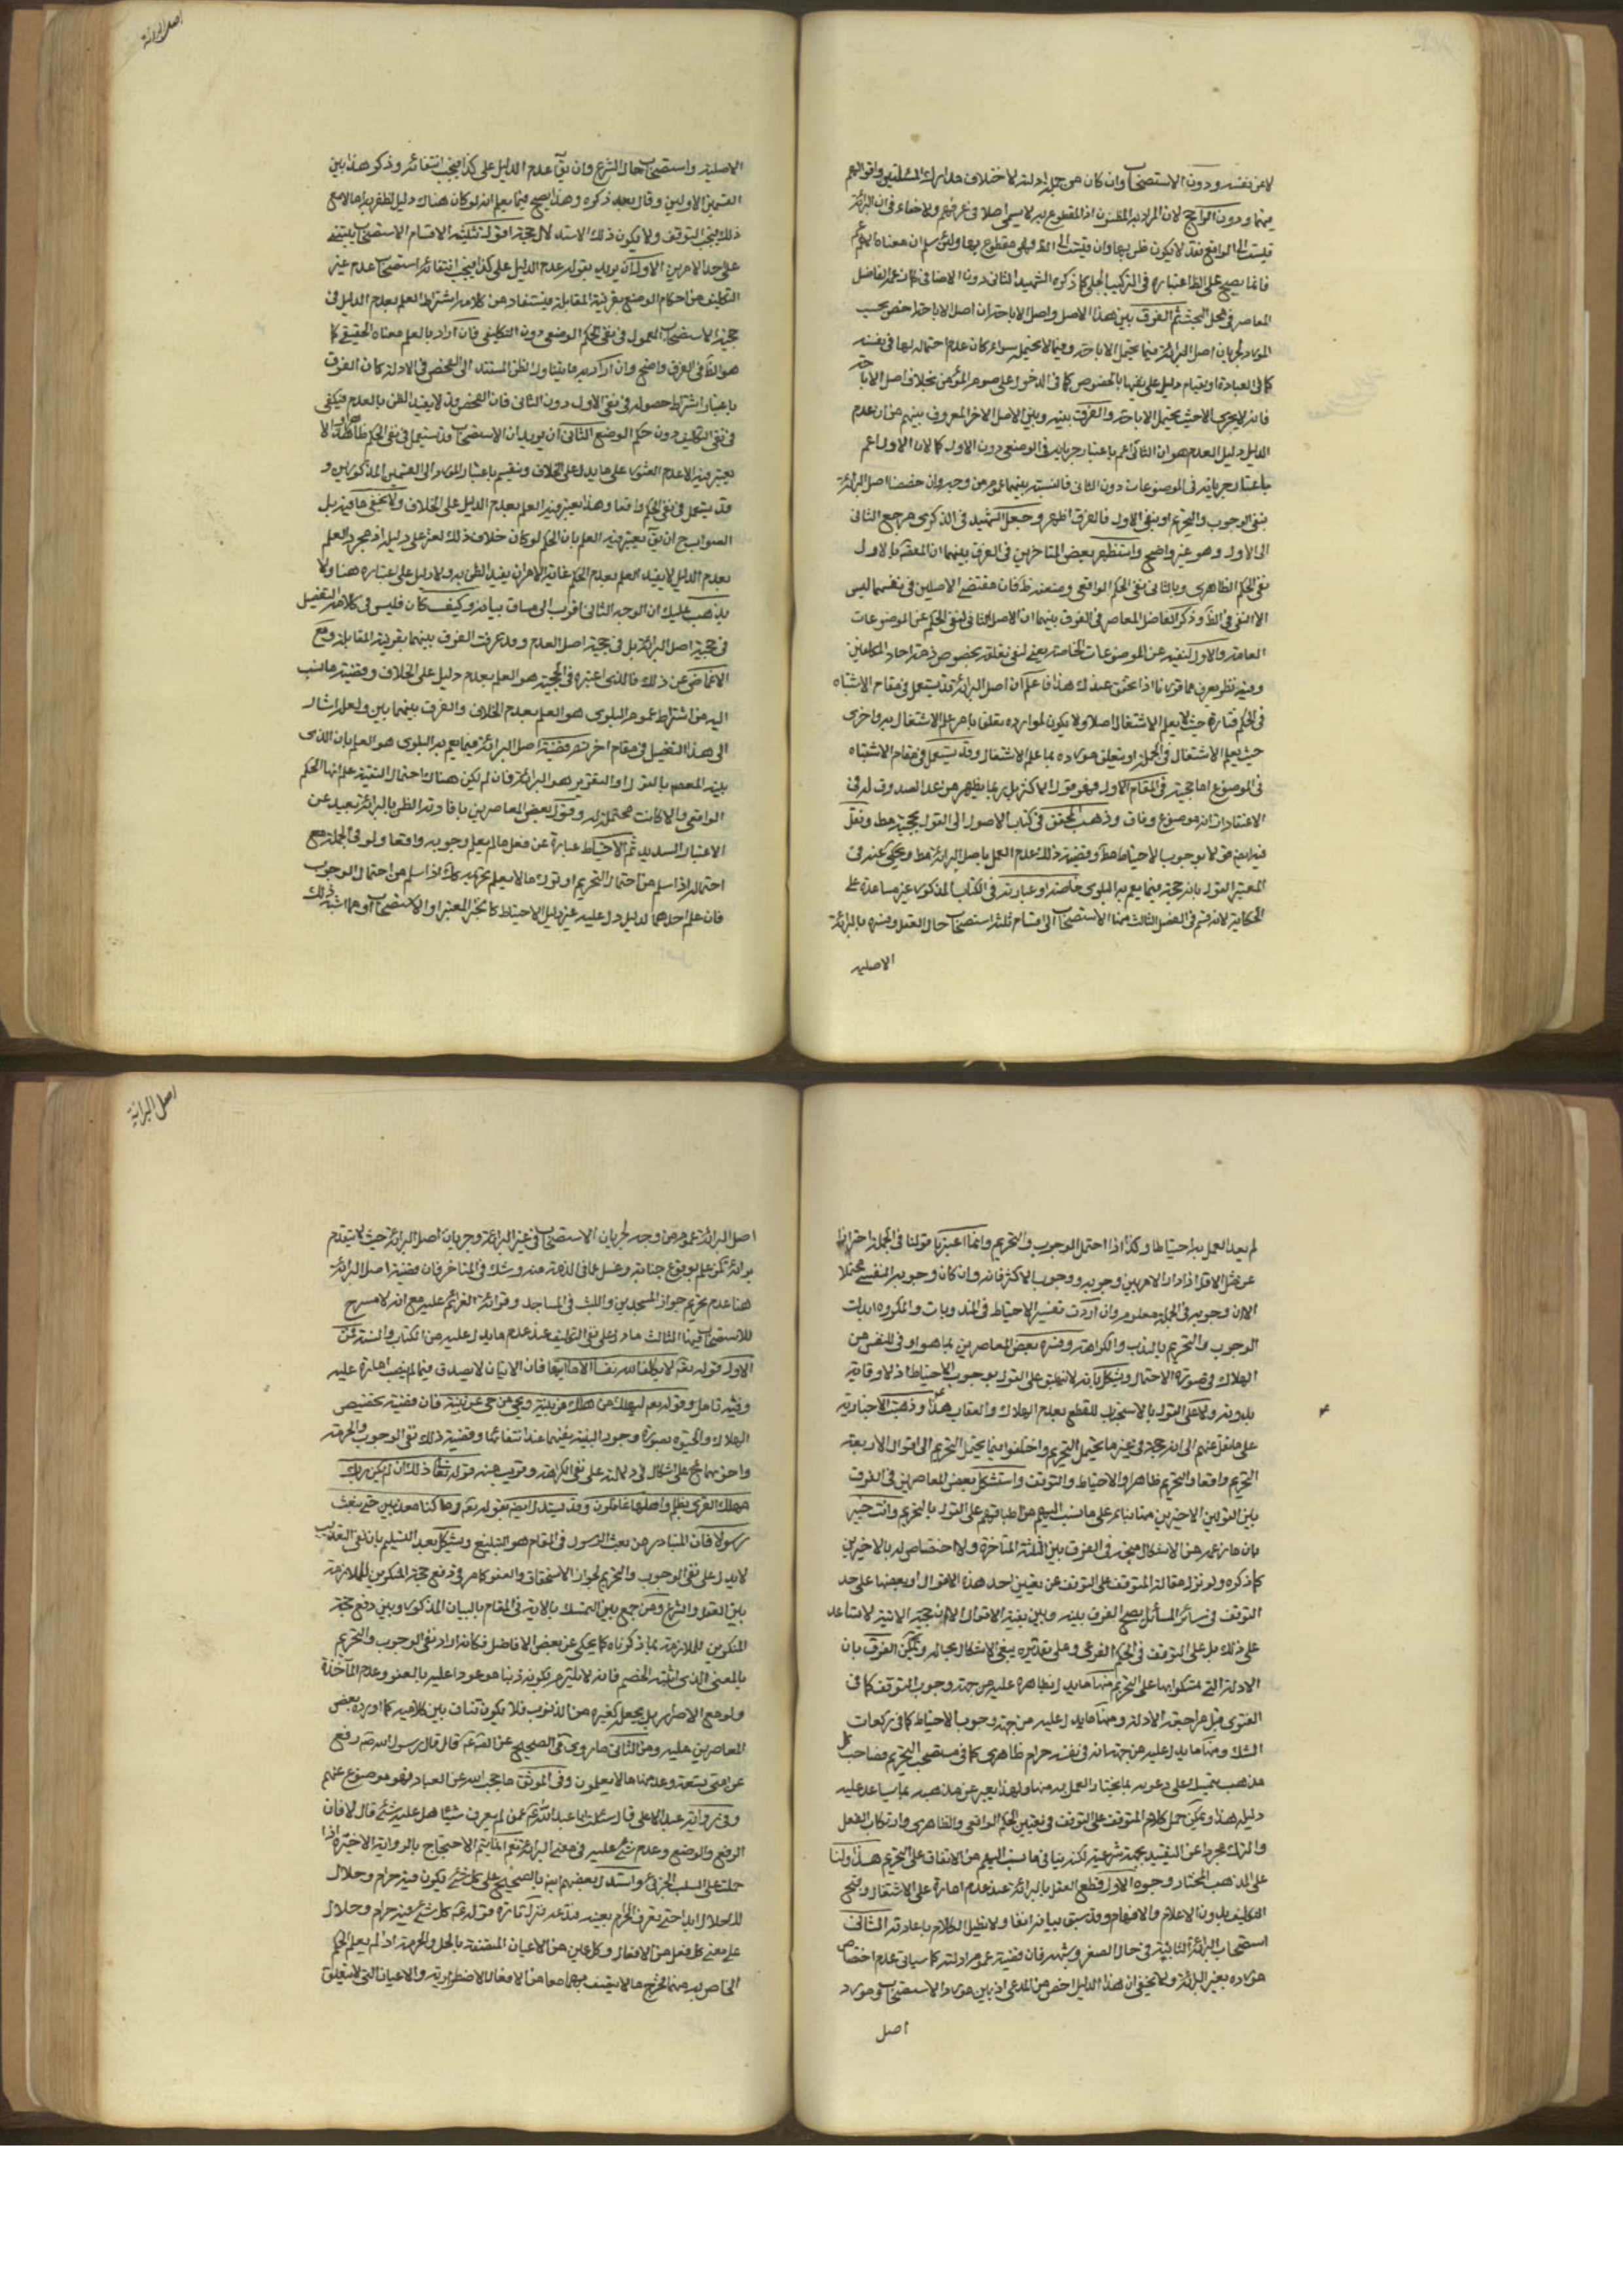 لا عن نفسه ودون الاستصحاب وان كان من جملة ادلته لاختلاف مدارك المسئلتين واقوالهم
فيهما ودون الراجح لان المراد به المظنون اذ المقطوع به لا يسمى اصلا في عرفهم ولا خفاء في ان البرائة
فانما يصح على الظ اعتباره في التركيب الجملي كما ذكره الشهيد الثاني دون الاضافي كما زعمه الفاضل
المعاصر في محل البحث ثم الفرق بين هذا الاصل واصل الاباحة ان اصل الاباحة اخص بحسب
المورد لجريان اصل البرائة فيما يحتمل الاباحة وفيما لا يحتمله سواء كان عدم احتماله لها في نفسه
كما في العبادة او بقيام دليل على نفيها بالخصوص كما في الدخول على سوم المؤمن بخلاف اصل الاباحة
فانه لا يجري الا حيث يحتمل الاباحة والفرق بينه وبين الاصل الاخر المعروف بينهم من ان عدم
الدليل دليل العدم هو ان الثاني اعم باعتبار جريانه في الوضعي دون الاول كما ان الاول اعم
باعتبار جريانه في الموضوعات دون الثاني فالنسبة بينهما عموم من وجه وان خصصنا اصل البرائة
بنفي الوجوب والتحريم او بنفي الاول فالفرق اظهر وجعل الشهيد في الذكرى مرجع الثاني
الى الاول وهو غير واضح واستظهر بعض المتاخرين في الفرق بينهما ان المقصود بالاول
نفي الحكم الظاهري وبالثاني نفي الحكم الواقعي وضعفه ظ فان مقتضى الاصلين في نفسهما ليس
الا النفي في الظ وذكر الفاضل المعاصر في الفرق بينهما ان الاصل الثاني لنفي الحكم عن الموضوعات
العامة والاول لنفيه عن الموضوعات الخاصة يعني لنفي تعلقه بخصوص ذمة احاد المكلفين
وفيه نظر يعرف مما قررنا اذا تحقق عندك هذا فاعلم ان اصل البرائة قد يستعمل في مقام الاشتباه
في الحكم فتارة حيث لا يعلم الاشتغال اصلا ولا يكون لموارده تعلق بما مر علم الاشتغال به واخرى
حيث يعلم الاشتغال في الجملة او يتعلق موارده بما علم الاشتغال وقد يستعمل في مقام الاشتباه
في الموضوع اما حجيته في المقام الاول فهو قول الاكثر بل ربما يظهر من عد الصدوق له في
الاعتقادات انه موضع وفاق وذهب المحقق في كتاب الاصول الى القول بحجيته مط ونقل
فيه ايضا قولا بوجوب الاحتياط مط وقضية ذلك عدم العمل باصل البرائة مط ويحكى عنه في
المعتبر القول بانه حجة فيما يعم به البلوى خاصة وعبارته في الكتاب المذكور غير مساعدة على
الحكاية لانه قسم في الفصل الثالث منها الاستصحاب الى اقسام ثلثة استصحاب حال العقل وفسره بالبرائة
الاصلية
اصل البرائة
الاصلية واستصحاب حال الشرع وان يق عدم الدليل على كذا فيجب انتفائه وذكر هذا بين
القسمين الاولين وقال بعد ذكره وهذا يصح فيما يعلم انه لو كان هناك دليل لظفر به اما لا مع
ذلك فيجب التوقف ولا يكون ذلك الاستدلال حجة اقول تثليثه الاقسام الاستصحاب يبتنى
على احد الامرين الاول ان يريد بقوله عدم الدليل على كذا فيجب انتفائه استصحاب عدم غير
التكليف من احكام الوضع بقرينة المقابلة فيستفاد من كلامه اشتراط العلم بعدم الدليل في
حجية الاستصحاب المعمول في نفي الحكم الوضعي دون التكليفي فان اراد بالعلم معناه الحقيقي كما
هو الظ في الفرق واضح وان اراد به ما يتناول الظن المستند الى الفحص في الادلة كان الفرق
باعتبار اشتراط حصوله في نفي الاول دون الثاني فان الفحص قد لا يفيد الظن بالعدم فيكفي
في نفي التكليف دون حكم الوضع الثاني ان يريد ان الاستصحاب قد يستعمل في نفي الحكم ظاهرا ولا
يعتبر فيه الا عدم العثور على ما يدل على الخلاف وينقسم باعتبار المورد الى القسمين المذكورين و
قد يستعمل في نفي الحكم واقعا وهذا يعتبر فيه العلم بعدم الدليل على الخلاف ولا يخفى ما فيه بل
الصواب ح ان يق يعتبر فيه العلم بان الحكم لو كان خلاف ذلك لعثر على دليله اذ مجرد العلم
بعدم الدليل لا يفيد العلم بعدم الحكم غاية الامر ان يفيد الظن به ولا دليل على اعتباره هنا ولا
يذهب عليك ان الوجه الثاني اقرب الى مساق بيانه وكيف كان فليس في كلامه التفصيل
في حجية اصل البرائة بل في حجية اصل العدم وقد عرفت الفرق بينهما بقرينة المقابلة ومع
الاغماض عن ذلك فالذي اعتبره في الحجية هو العلم بعدم دليل على الخلاف وقضية ما نسب
اليه من اشتراط عموم البلوى هو العلم بعدم الخلاف والفرق بينهما بين ولعله اشار
الى هذا التفصيل في مقام اخر نعم قضية اصل البرائة فيما يعم به البلوى هو العلم بان الذي
بينه المعصوم بالقول او التقرير هو البرائة فان لم يكن هناك احتمال التقية علم انها الحكم
الواقعي والا كانت محتملة له وقول بعض المعاصرين بافادته الظن بالبرائة بعيد عن
الاعتبار السديد ثم الاحتياط عبارة عن فعل ما لم يعلم وجوبه واقعا ولو في الجملة مع
احتماله اذا سلم من احتمال التحريم او ترك ما لا يعلم تحريمه كك اذا سلم من احتمال الوجوب
فان علم احدهما لدليل دل عليه غير دليل الاحتياط كالخبر المعتبر او الاستصحاب او ما اشبه ذلك
لم يعد العمل به احتياطا وكذا اذا احتمل الوجوب والتحريم وانما اعتبرنا قولنا في الجملة احترازا
عن مثل الاقل اذا دار الامر بين وجوبه ووجوب الاكثر فانه وان كان وجوبه النفسي محتملا
الا ان وجوبه في الجملة معلوم وان اردت تفسير الاحتياط في المندوبات والمكروه ابدلت
الوجوب والتحريم بالندب والكراهة وفسره بعض المعاصرين بما هو اوفى للنفس من
الهلاك في صورة الاحتمال ويشكل بانه لا ينطبق على القول بوجوب الاحتياط اذ لا وقاية
بدونه ولا على القول بالاستحباب للقطع بعدم الهلاك والعقاب هذا وذهبت الاخبارية
على ما نقل عنهم الى انه حجة في غير ما يحتمل التحريم واختلفوا فيما يحتمل التحريم الى اقوال الاربعة
التحريم واقعا والتحريم ظاهرا والاحتياط والتوقف واستشكل بعض المعاصرين في الفرق
بين القولين الاخيرين منها بناء على ما نسب اليهم من اطباقهم على القول بالتحريم وانت خبير
بان ما زعمه من الاشكال متجه في الفرق بين الثلثة المتاخرة ولا اختصاص له بالاخيرين
كما ذكره ولو نزل مقالة المتوقف على التوقف عن تعيين احد هذه الاقوال او بعضها على حد
التوقف في سائر المسائل يصح الفرق بينه وبين بقية الاقوال الا ان حجية الاتية لا تساعد
على ذلك بل على التوقف في الحكم الفرعي وعلى تقديره يبقى الاشكال بحاله ويمكن الفرق بان
الادلة التي تمسكوا بها على التحريم منها ما يدل بظاهره عليه من جهة وجوب التوقف كما في
الفتوى قبل مراجعة الادلة ومنها ما يدل عليه من جهة وجوب الاحتياط كما في ركعات
الشك ومنها ما يدل عليه من جهة انه في نفسه حرام ظاهري كما في مستصحب التحريم فصاحب كل
مذهب يتمسك على دعويه بما يختار العمل به منها ولهذا يعبر عن مذهبه بما يساعد عليه
دليله هذا ويمكن حمل كلام المتوقف على التوقف في تعيين الحكم الواقعي والظاهري وارتكاب الفعل
والترك مجردا عن التقييد بجهة شرعية لكنه ينافي ما نسب اليهم من الاتفاق على التحريم هذا ولنا
على المذهب المختار وجوه الاول قطع العقل بالبرائة عند عدم امارة على الاشتغال وقبح
التكليف بدون الاعلام والافهام وقد سبق بيانه انفا ولا نطيل الكلام باعادته الثاني
استصحاب البرائة الثابتة في حال الصغر وشبهه فان قضية عموم ادلته كما سياتي عدم اختصاص
مورده بغير البرائة ولا يخفى ان هذا الدليل اخص من المدعى اذ بين موارد الاستصحاب وموارد
اصل
اصل البرائة
اصل البرائة عموم من وجه لجريان الاستصحاب في غير البرائة وجريان اصل البرائة حيث لا يتقدم
برائة كمن علم بوقوع جنابة وغسل عافي الذمة منه وشك في المتاخر فان قضية اصل البرائة
هنا عدم تحريم جواز المسجدين واللبث في المساجد وقرائة العزائم عليه مع انه لا مسرح
للاستصحاب فيها الثالث ما دل على نفي التكليف عند عدم ما يدل عليه من الكتاب والسنة فمن
الاول قوله تعالى لا يكلف الله نفسا الا ما اتيها فان الاتيان لا يصدق فيما لم ينصب امارة عليه
وفيه تامل وقوله تعالى ليهلك من هلك عن بينة ويحيى من حي عن بينة فان قضية تخصيص
الهلاك والحيوة بصورة وجود البينة نفيهما عند انتفائها وقضية ذلك نفي الوجوب والحرمة
مهلك القرى بظلم واهلها غافلون وقد يستدل ايضا بقوله تعالى وما كنا معذبين حتى نبعث
رسولا فان المتبادر من بعث الرسول في المقام هو التبليغ ويشكل بعد التسليم بان نفي التعذيب
لا يدل على نفي الوجوب والتحريم لجواز الاستحقاق والعفو كما مر في دفع حجة المنكرين للملازمة
بين العقل والشرع ومن جمع بين التمسك بالاية في المقام بالبيان المذكور وبين دفع حجة
المنكرين للملازمة بما ذكرناه كما يحكى عن بعض الافاضل فكانه اراد نفي الوجوب والتحريم
بالمعنى الذي اثبته الخصم فانه لا يلتزم بكونه ذنبا موعودا عليه بالعفو وعدم المؤاخذة
ولو مع الاصرار بل يجعله كغيره من الذنوب فلا يكون تناف بين كلاميه كما اورده بعض
المعاصرين عليه ومن الثاني ما روي في الصحيح عن الص ع قال قال رسول الله ص رفع
عن امتي تسعة وعد منها ما لا يعلمون وفي الموثق ما حجب الله عن العباد فهو موضوع عنهم
وفي رواية عبد الاعلى قال سئلت ابا عبد الله ع عمن لم يعرف شيئا هل عليه شئ قال لا فان
الرفع والوضع وعدم شئ عليه في معنى البرائة نعم انما يتم الاحتجاج بالرواية الاخيرة اذا
حملت على السلب الجزئي واستدل بعضهم ايضا بالصحيح على كل شئ يكون فيه حرام وحلال
لك حلال ابدا حتى تعرف الحرام بعينه فتدعه فنزل تارة قوله ع كل شئ فيه حرام وحلال
على معنى كل فعل من الافعال وكل عين من الاعيان المتصفة بالحل والحرمة اذا لم يعلم الحكم
الخاص به منهما فخرج ما لا يتصف بهما معا من الافعال الاضطرارية والاعيان التي لا يتعلق